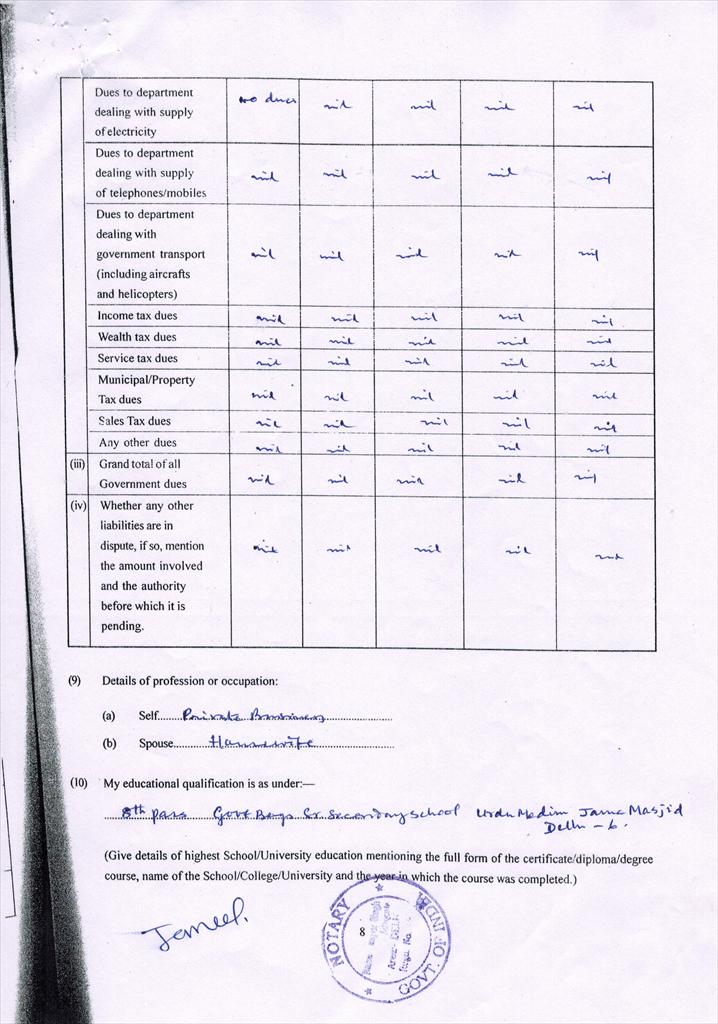 Dues to department dealing with supply of electricity no dues nil nil nil nil
Dues to department dealing with supply of telephones/mobiles nil nil nil nil nil
Dues to department dealing with government transport (including aircrafts and helicopters) nil nil nil nil nil
Income tax dues nil nil nil nil nil
Wealth tax dues nil nil nil nil nil
Service tax dues nil nil nil nil nil
Municipal/Property Tax dues nil nil nil nil nil
Sales Tax dues nil nil nil nil nil
Any other dues nil nil nil nil nil
(iii) Grand total of all Government dues nil nil nil nil nil
(iv) Whether any other liabilities are in dispute, if so, mention the amount involved and the authority before which it is pending. nil nil nil nil nil
(9) Details of profession or occupation:
(a) Self.........Private Bussiness......................
(b) Spouse............Housewife...........................
(10) My educational qualification is as under:—
8th pass Govt Boys Sr. Secondary School Urdu Medim Jama Masjid
Delhi - 6.
(Give details of highest School/University education mentioning the full form of the certificate/diploma/degree
course, name of the School/College/University and the year in which the course was completed.)
Jameel.
8
NOTARY
GOVT. OF INDIA